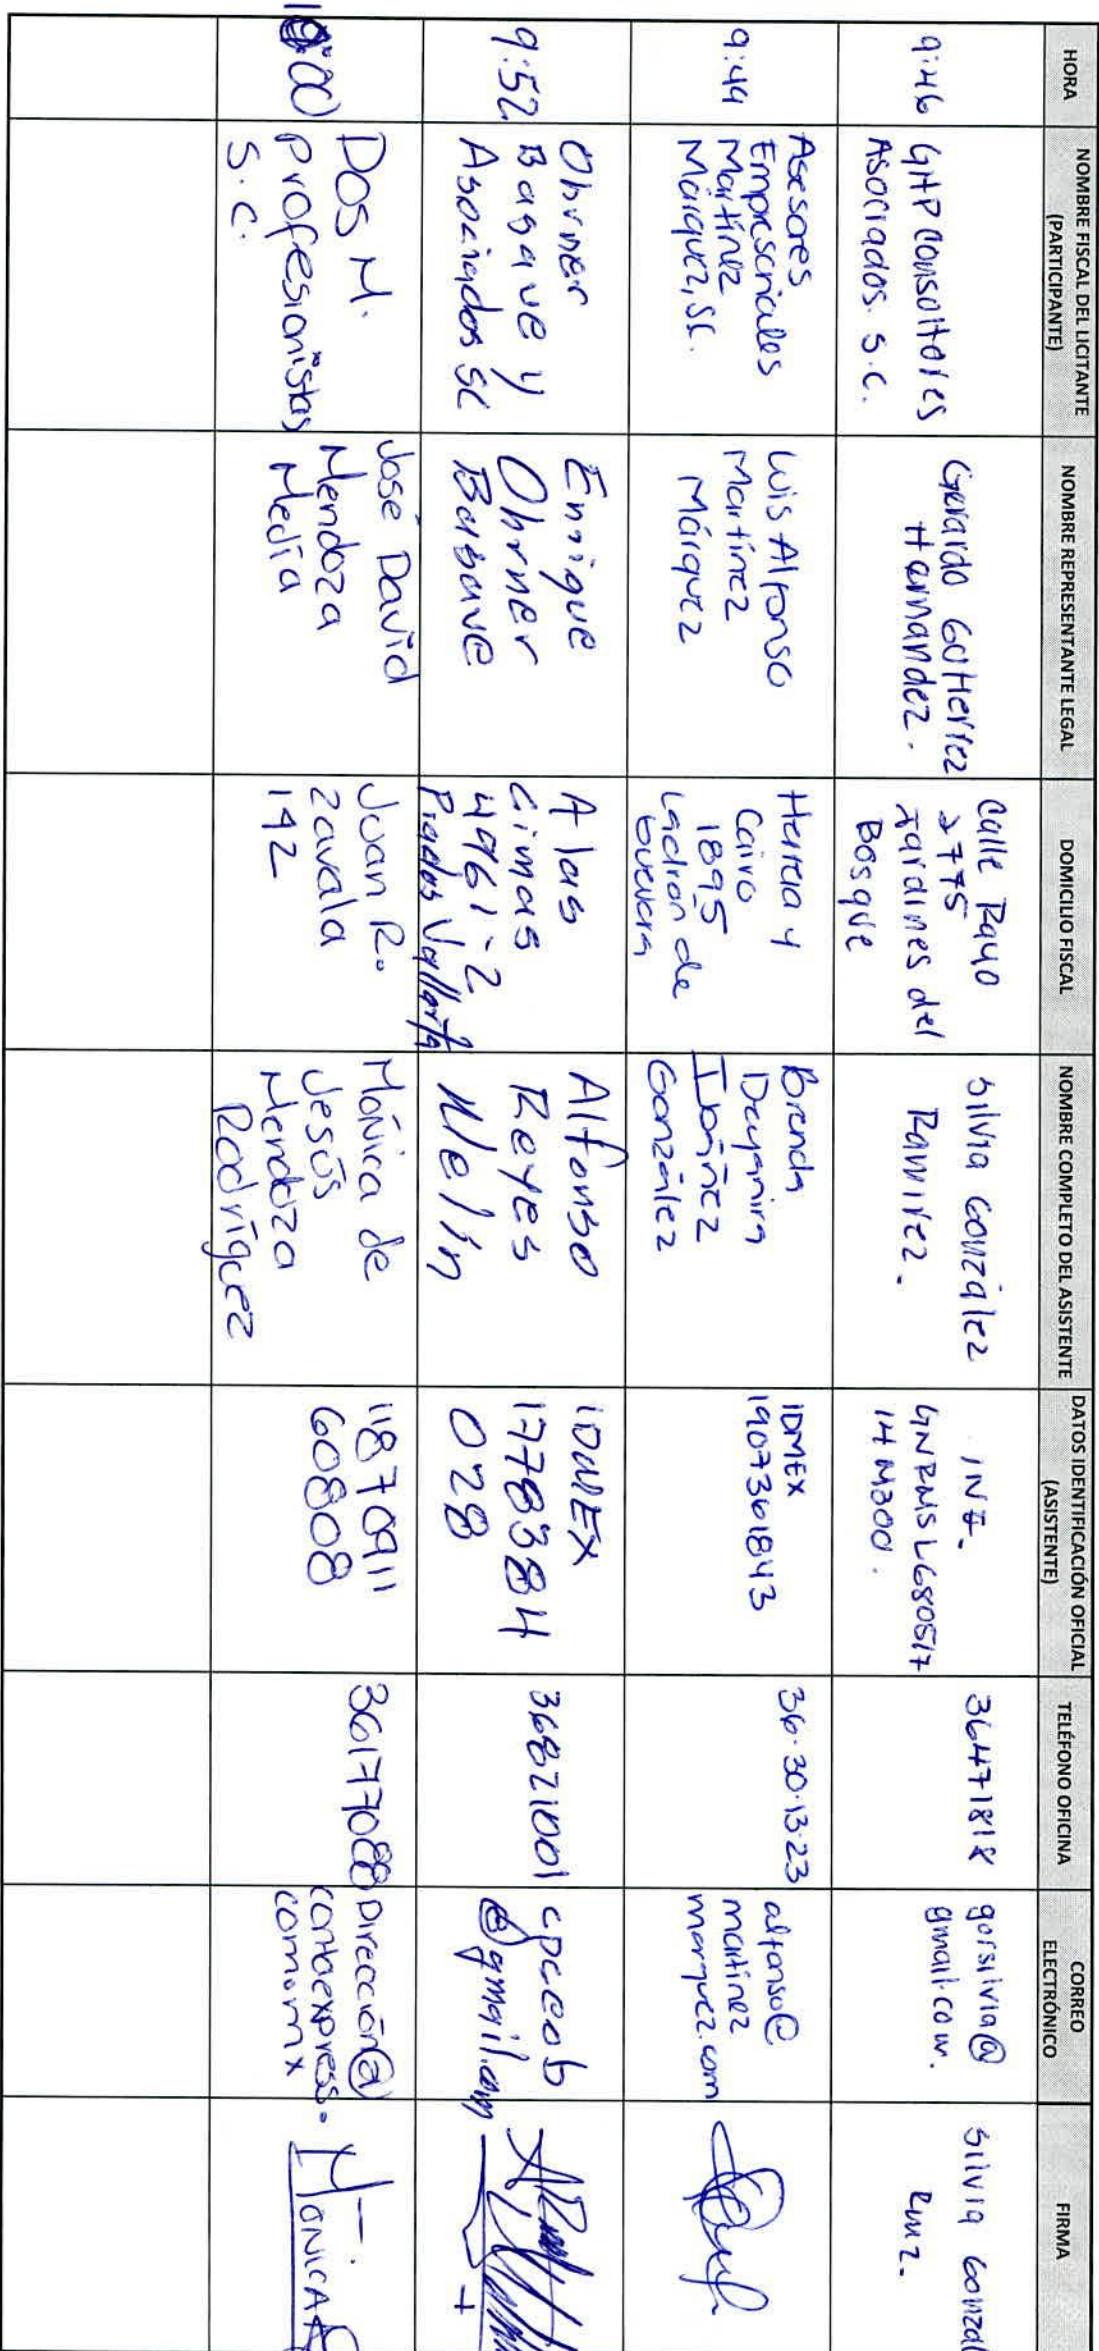 HORA
NOMBRE FISCAL DEL LICITANTE
(PARTICIPANTE)
NOMBRE REPRESENTANTE LEGAL
DOMICILIO FISCAL
NOMBRE COMPLETO DEL ASISTENTE
DATOS IDENTIFICACIÓN OFICIAL
(ASISTENTE)
TELÉFONO OFICINA
CORREO
ELECTRÓNICO
FIRMA
9:46
GHP Consultores
Asociados. S.C.
Gerardo Gutierrez
Hernandez.
Calle Rayo
2775
Jardines del
Bosque
Silvia González
Ramirez.
INE.
GNRMSL680517
14M300.
36471818
gorsilvia@
gmail.com.
Silvia Gonzal
Rmz.
9:44
Asesores
Empresariales
Martínez
Márquez, SC.
Luis Alfonso
Martínez
Márquez
Herrera y
Cairo
1895
Ladron de
Guevara
Brenda
Deyanira
Ibáñez
González
IDMEX
1907361843
36·30·13·23
alfonso@
martinez
marquez.com
9:52
Ohrner
Basave y
Asociados SC
Enrique
Ohrner
Basave
A las
Cimas
4961-2
Prados Vallarta
Alfonso
Reyes
Melín
IDMEX
1778384
028
36821001
cpceob
@gmail.com
10:00
Dos M.
Profesionistas
S.C.
José David
Mendoza
Mejía
Juan R.
Zavala
192
Mónica de
Jesús
Mendoza
Rodríguez
11870911
60808
36177088
Dirección@
contaexpress.
com.mx
MONICA